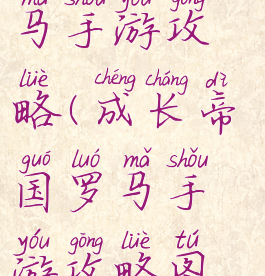 mǎ shǒu yóu gōng
马手游攻
lüè chéng cháng dì
略(成长帝
guó luó mǎ shǒu
国罗马手
yóu gōng lüè tú
游攻略图